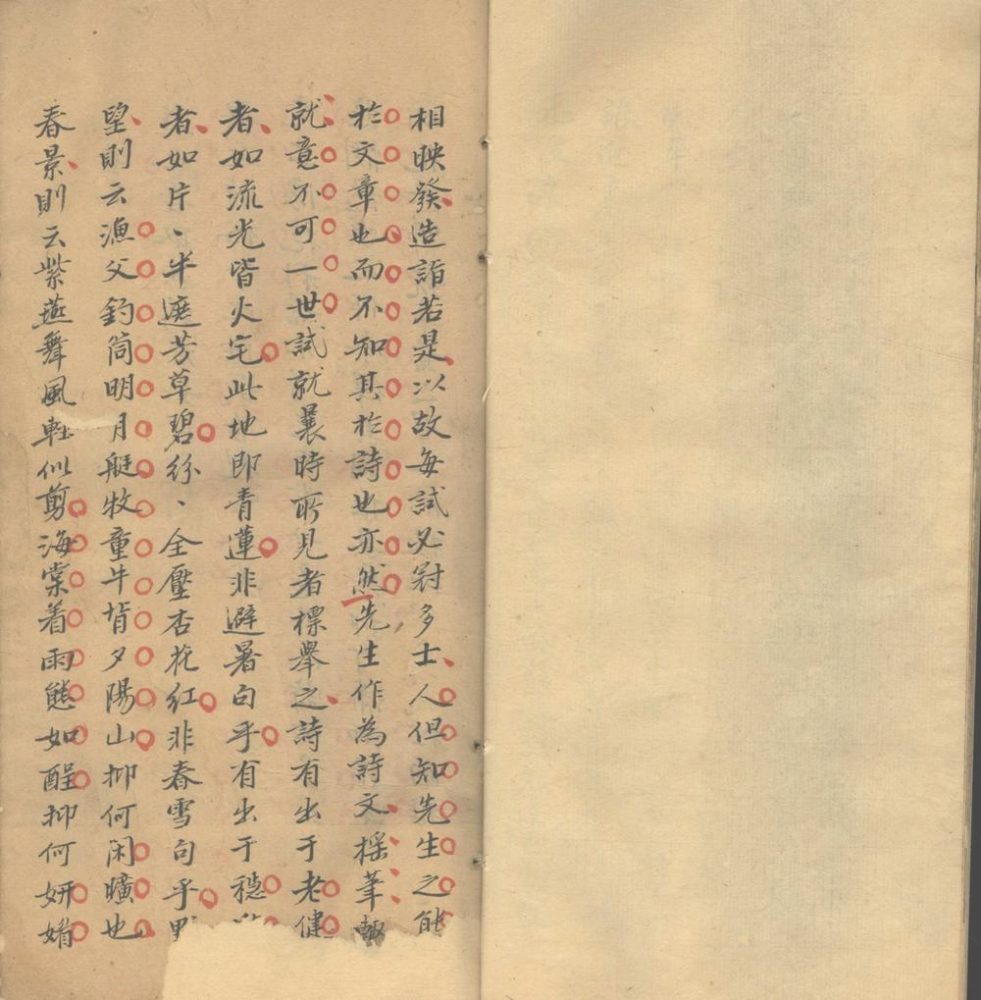 相映發造詣若是以故每試必冠多士人但知先生之能
於文章也而不知其於詩也亦然先生作為詩文搖筆輒
就意不可一世試就曩時所見者標舉之詩有出于老健
者如流光皆火宅此地即青蓮非避暑句乎有出于穠
者如片、半遮芳草碧紛、全壓杏花紅非春雪句乎野
望則云漁父釣筒明月艇牧童牛背夕陽山抑何闲曠也
春景則云紫燕舞風輕似剪海棠着雨態如醒抑何妍媚